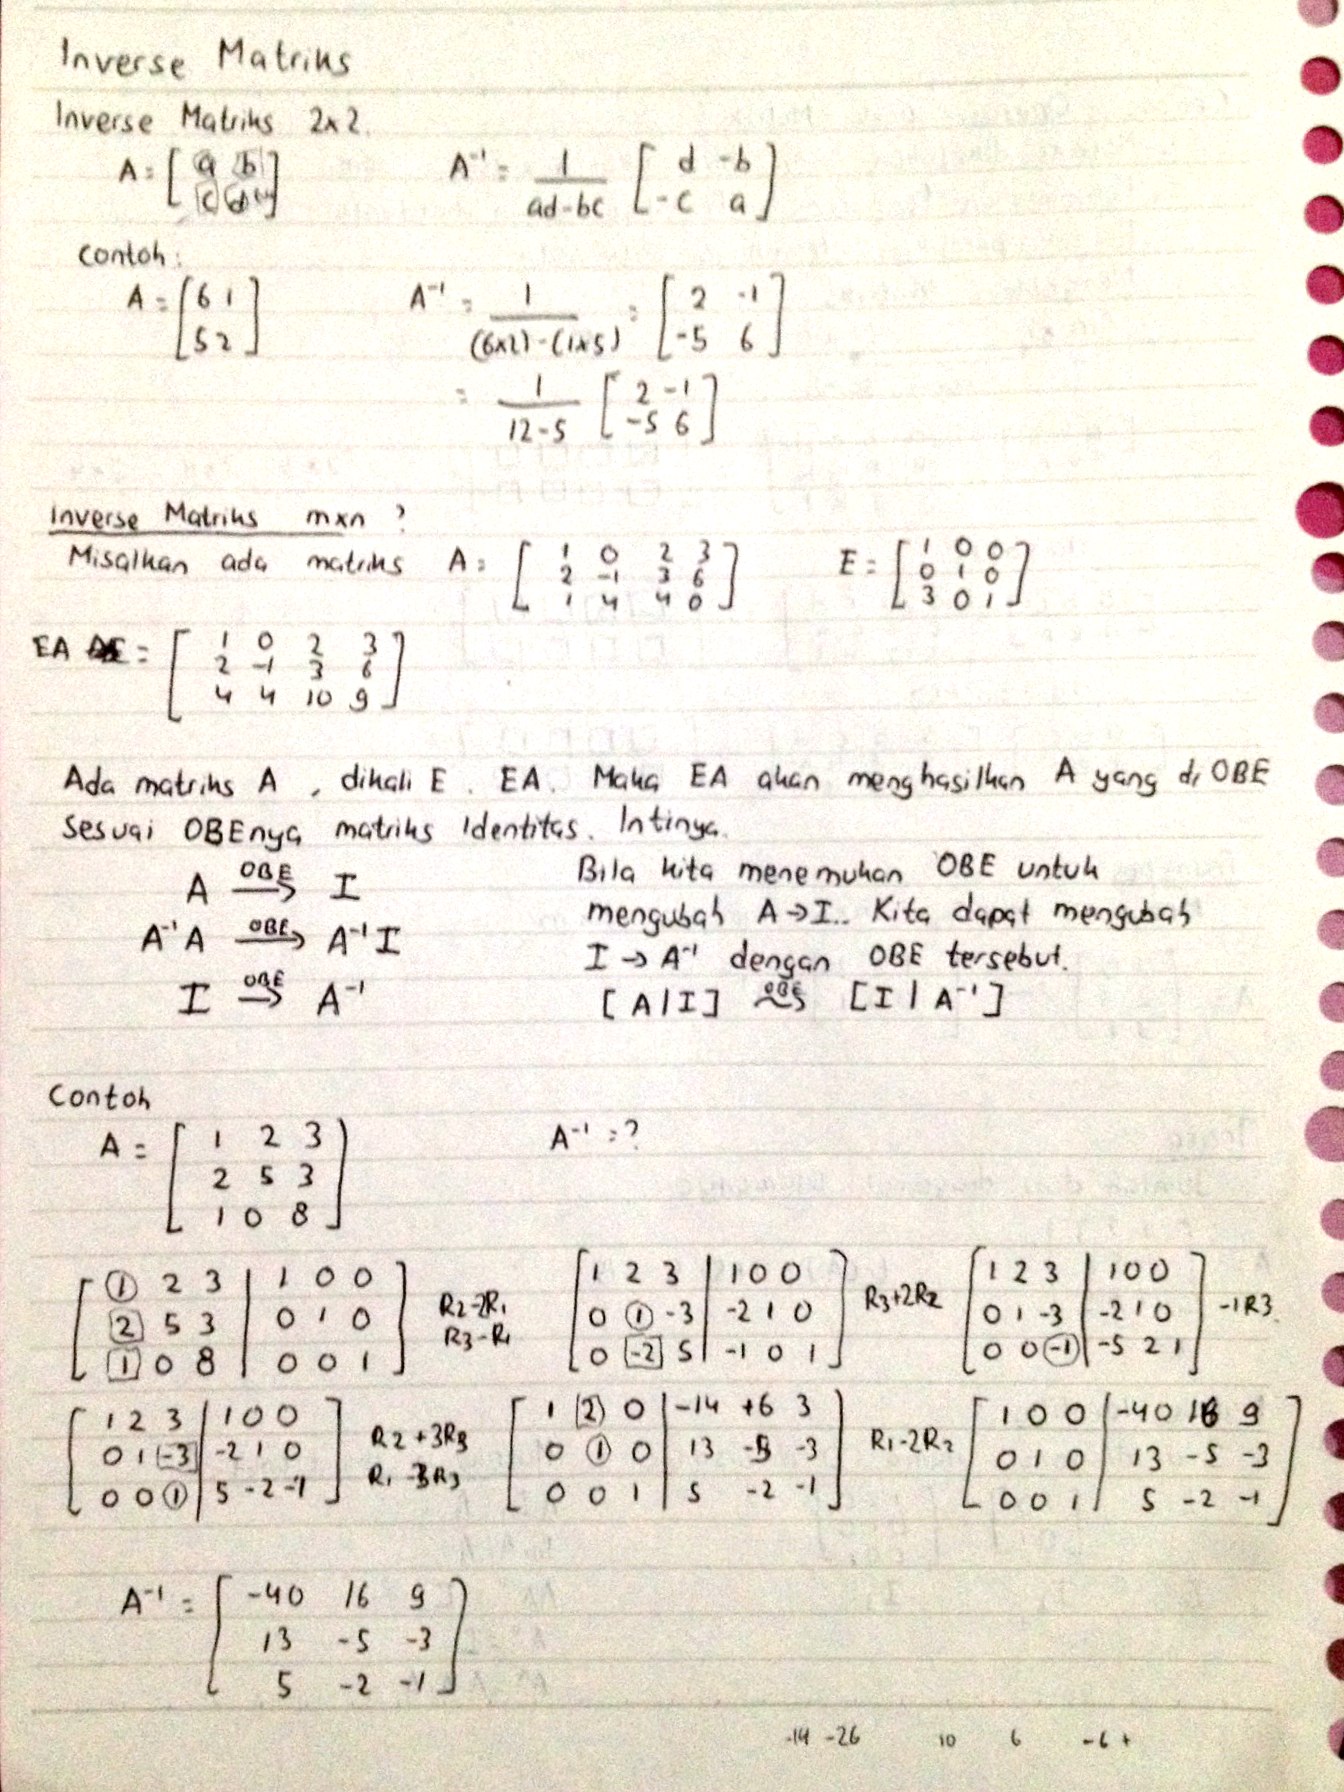 Inverse Matriks
Inverse Matriks 2x2.
A = [ a b ] A⁻¹ = 1 [ d -b ]
[ c d ] ad-bc [ -c a ]
Contoh:
A = [ 6 1 ] A⁻¹ = 1 = [ 2 -1 ]
[ 5 2 ] (6x2)-(1x5) [ -5 6 ]
= 1 [ 2 -1 ]
12-5 [ -5 6 ]
Inverse Matriks mxn ?
Misalkan ada matriks A = [ 1 0 2 3 ] E = [ 1 0 0 ]
[ 2 -1 3 6 ] [ 0 1 0 ]
[ 1 4 4 0 ] [ 3 0 1 ]
EA = [ 1 0 2 3 ]
[ 2 -1 3 6 ]
[ 4 4 10 9 ]
Ada matriks A , dikali E . EA. Maka EA akan menghasilkan A yang di OBE
sesuai OBEnya matriks Identitas. Intinya.
A OBE→ I
A⁻¹A OBE→ A⁻¹I
I OBE→ A⁻¹
Bila kita menemukan OBE untuk
mengubah A→I.. Kita dapat mengubah
I → A⁻¹ dengan OBE tersebut.
[ A | I ] OBE→ [ I | A⁻¹ ]
Contoh
A = [ 1 2 3 ] A⁻¹ = ?
[ 2 5 3 ]
[ 1 0 8 ]
[ 1 2 3 | 1 0 0 ] [ 1 2 3 | 1 0 0 ] [ 1 2 3 | 1 0 0 ]
[ 2 5 3 | 0 1 0 ] R2-2R1 [ 0 1 -3 | -2 1 0 ] R3+2R2 [ 0 1 -3 | -2 1 0 ] -1R3.
[ 1 0 8 | 0 0 1 ] R3-R1 [ 0 -2 5 | -1 0 1 ] [ 0 0 -1 | -5 2 1 ]
[ 1 2 3 | 1 0 0 ] [ 1 2 0 | -14 +6 3 ] [ 1 0 0 | -40 16 9 ]
[ 0 1 -3 | -2 1 0 ] R2+3R3 [ 0 1 0 | 13 -5 -3 ] R1-2R2 [ 0 1 0 | 13 -5 -3 ]
[ 0 0 1 | 5 -2 -1 ] R1-3R3 [ 0 0 1 | 5 -2 -1 ] [ 0 0 1 | 5 -2 -1 ]
A⁻¹ = [ -40 16 9 ]
[ 13 -5 -3 ]
[ 5 -2 -1 ]
-14 -26 10 6 -6 +